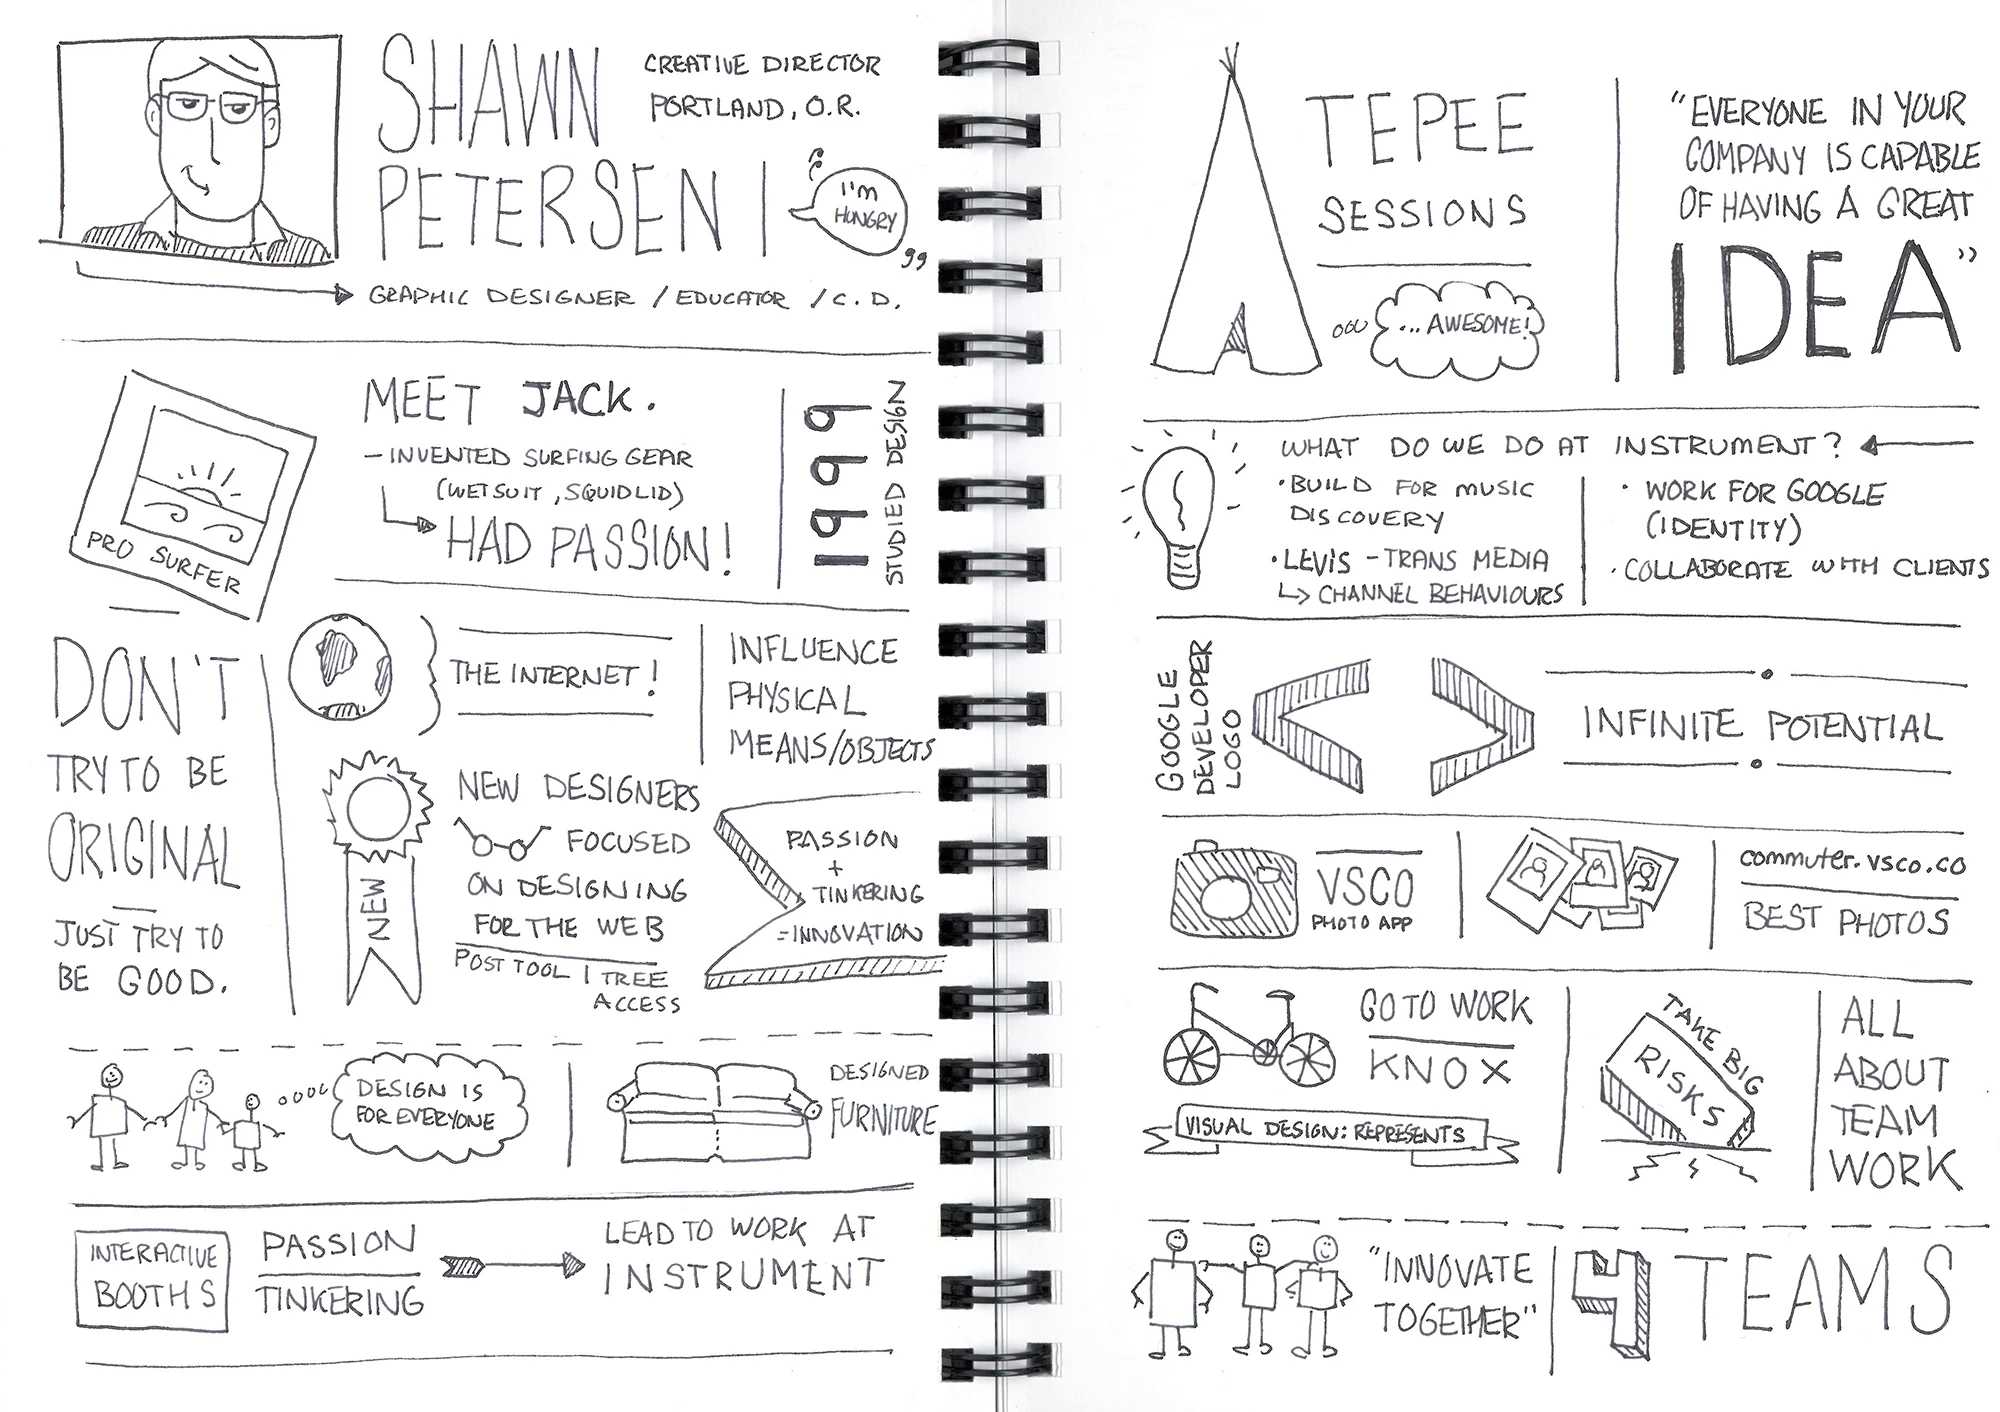 SHAWN
PETERSEN
CREATIVE DIRECTOR
PORTLAND, O.R.
I'M
HUNGRY
GRAPHIC DESIGNER / EDUCATOR / C.D.
PRO SURFER
MEET JACK.
- INVENTED SURFING GEAR
(WETSUIT, SQUIDLID)
HAD PASSION!
1999
STUDIED DESIGN
DON'T
TRY TO BE
ORIGINAL
JUST TRY TO
BE GOOD.
THE INTERNET!
INFLUENCE
PHYSICAL
MEANS/OBJECTS
NEW
NEW DESIGNERS
FOCUSED
ON DESIGNING
FOR THE WEB
POST TOOL | TREE
ACCESS
PASSION
+
TINKERING
=INNOVATION
DESIGN IS
FOR EVERYONE
DESIGNED
FURNITURE
INTERACTIVE
BOOTHS
PASSION
TINKERING
LEAD TO WORK AT
INSTRUMENT
TEPEE
SESSIONS
...AWESOME!
"EVERYONE IN YOUR
COMPANY IS CAPABLE
OF HAVING A GREAT
IDEA"
WHAT DO WE DO AT INSTRUMENT?
• BUILD FOR MUSIC
DISCOVERY
• LEVIS - TRANS MEDIA
↳ CHANNEL BEHAVIOURS
• WORK FOR GOOGLE
(IDENTITY)
• COLLABORATE WITH CLIENTS
GOOGLE
DEVELOPER
LOGO
< >
INFINITE POTENTIAL
VSCO
PHOTO APP
commuter.vsco.co
BEST PHOTOS
GO TO WORK
KNOX
VISUAL DESIGN: REPRESENTS
TAKE BIG
RISKS
ALL
ABOUT
TEAM
WORK
"INNOVATE
TOGETHER"
4 TEAMS